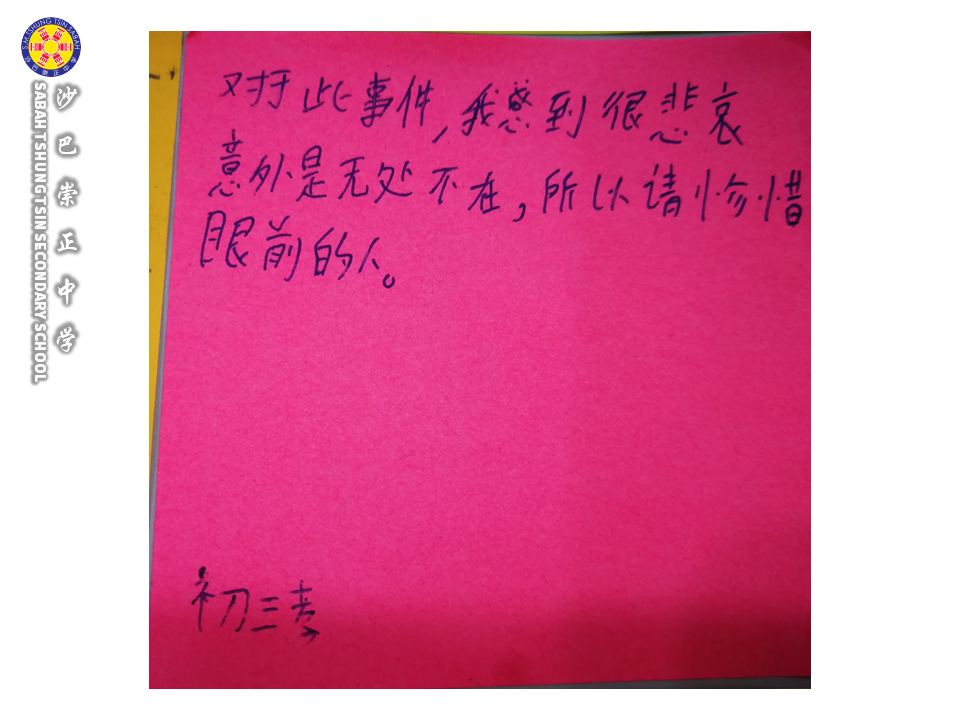 S.M. TSHUNG TSIN SABAH
沙巴崇正中学
沙巴崇正中学
SABAH TSHUNG TSIN SECONDARY SCHOOL
对于此事件,我感到很悲哀
意外是无处不在,所以请珍惜
眼前的人。
初三